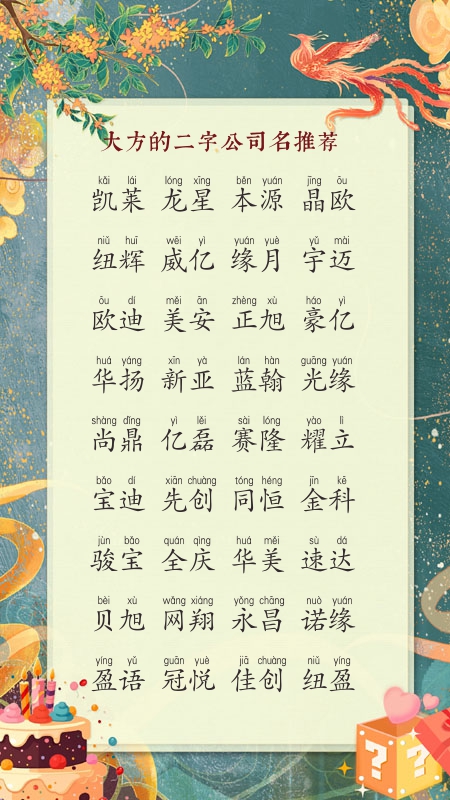 大方的二字公司名推荐
kǎi lái lóng xīng běn yuán jīng ōu
凯莱 龙星 本源 晶欧
niǔ huī wēi yì yuán yuè yǔ mài
纽辉 威亿 缘月 宇迈
ōu dí měi ān zhèng xù háo yì
欧迪 美安 正旭 豪亿
huá yáng xīn yà lán hàn guāng yuán
华扬 新亚 蓝翰 光缘
shàng dǐng yì lěi sài lóng yào lì
尚鼎 亿磊 赛隆 耀立
bǎo dí xiān chuàng tóng héng jīn kē
宝迪 先创 同恒 金科
jùn bǎo quán qìng huá měi sù dá
骏宝 全庆 华美 速达
bèi xù wǎng xiáng yǒng chāng nuò yuán
贝旭 网翔 永昌 诺缘
yíng yǔ guān yuè jiā chuàng niǔ yíng
盈语 冠悦 佳创 纽盈
? ?